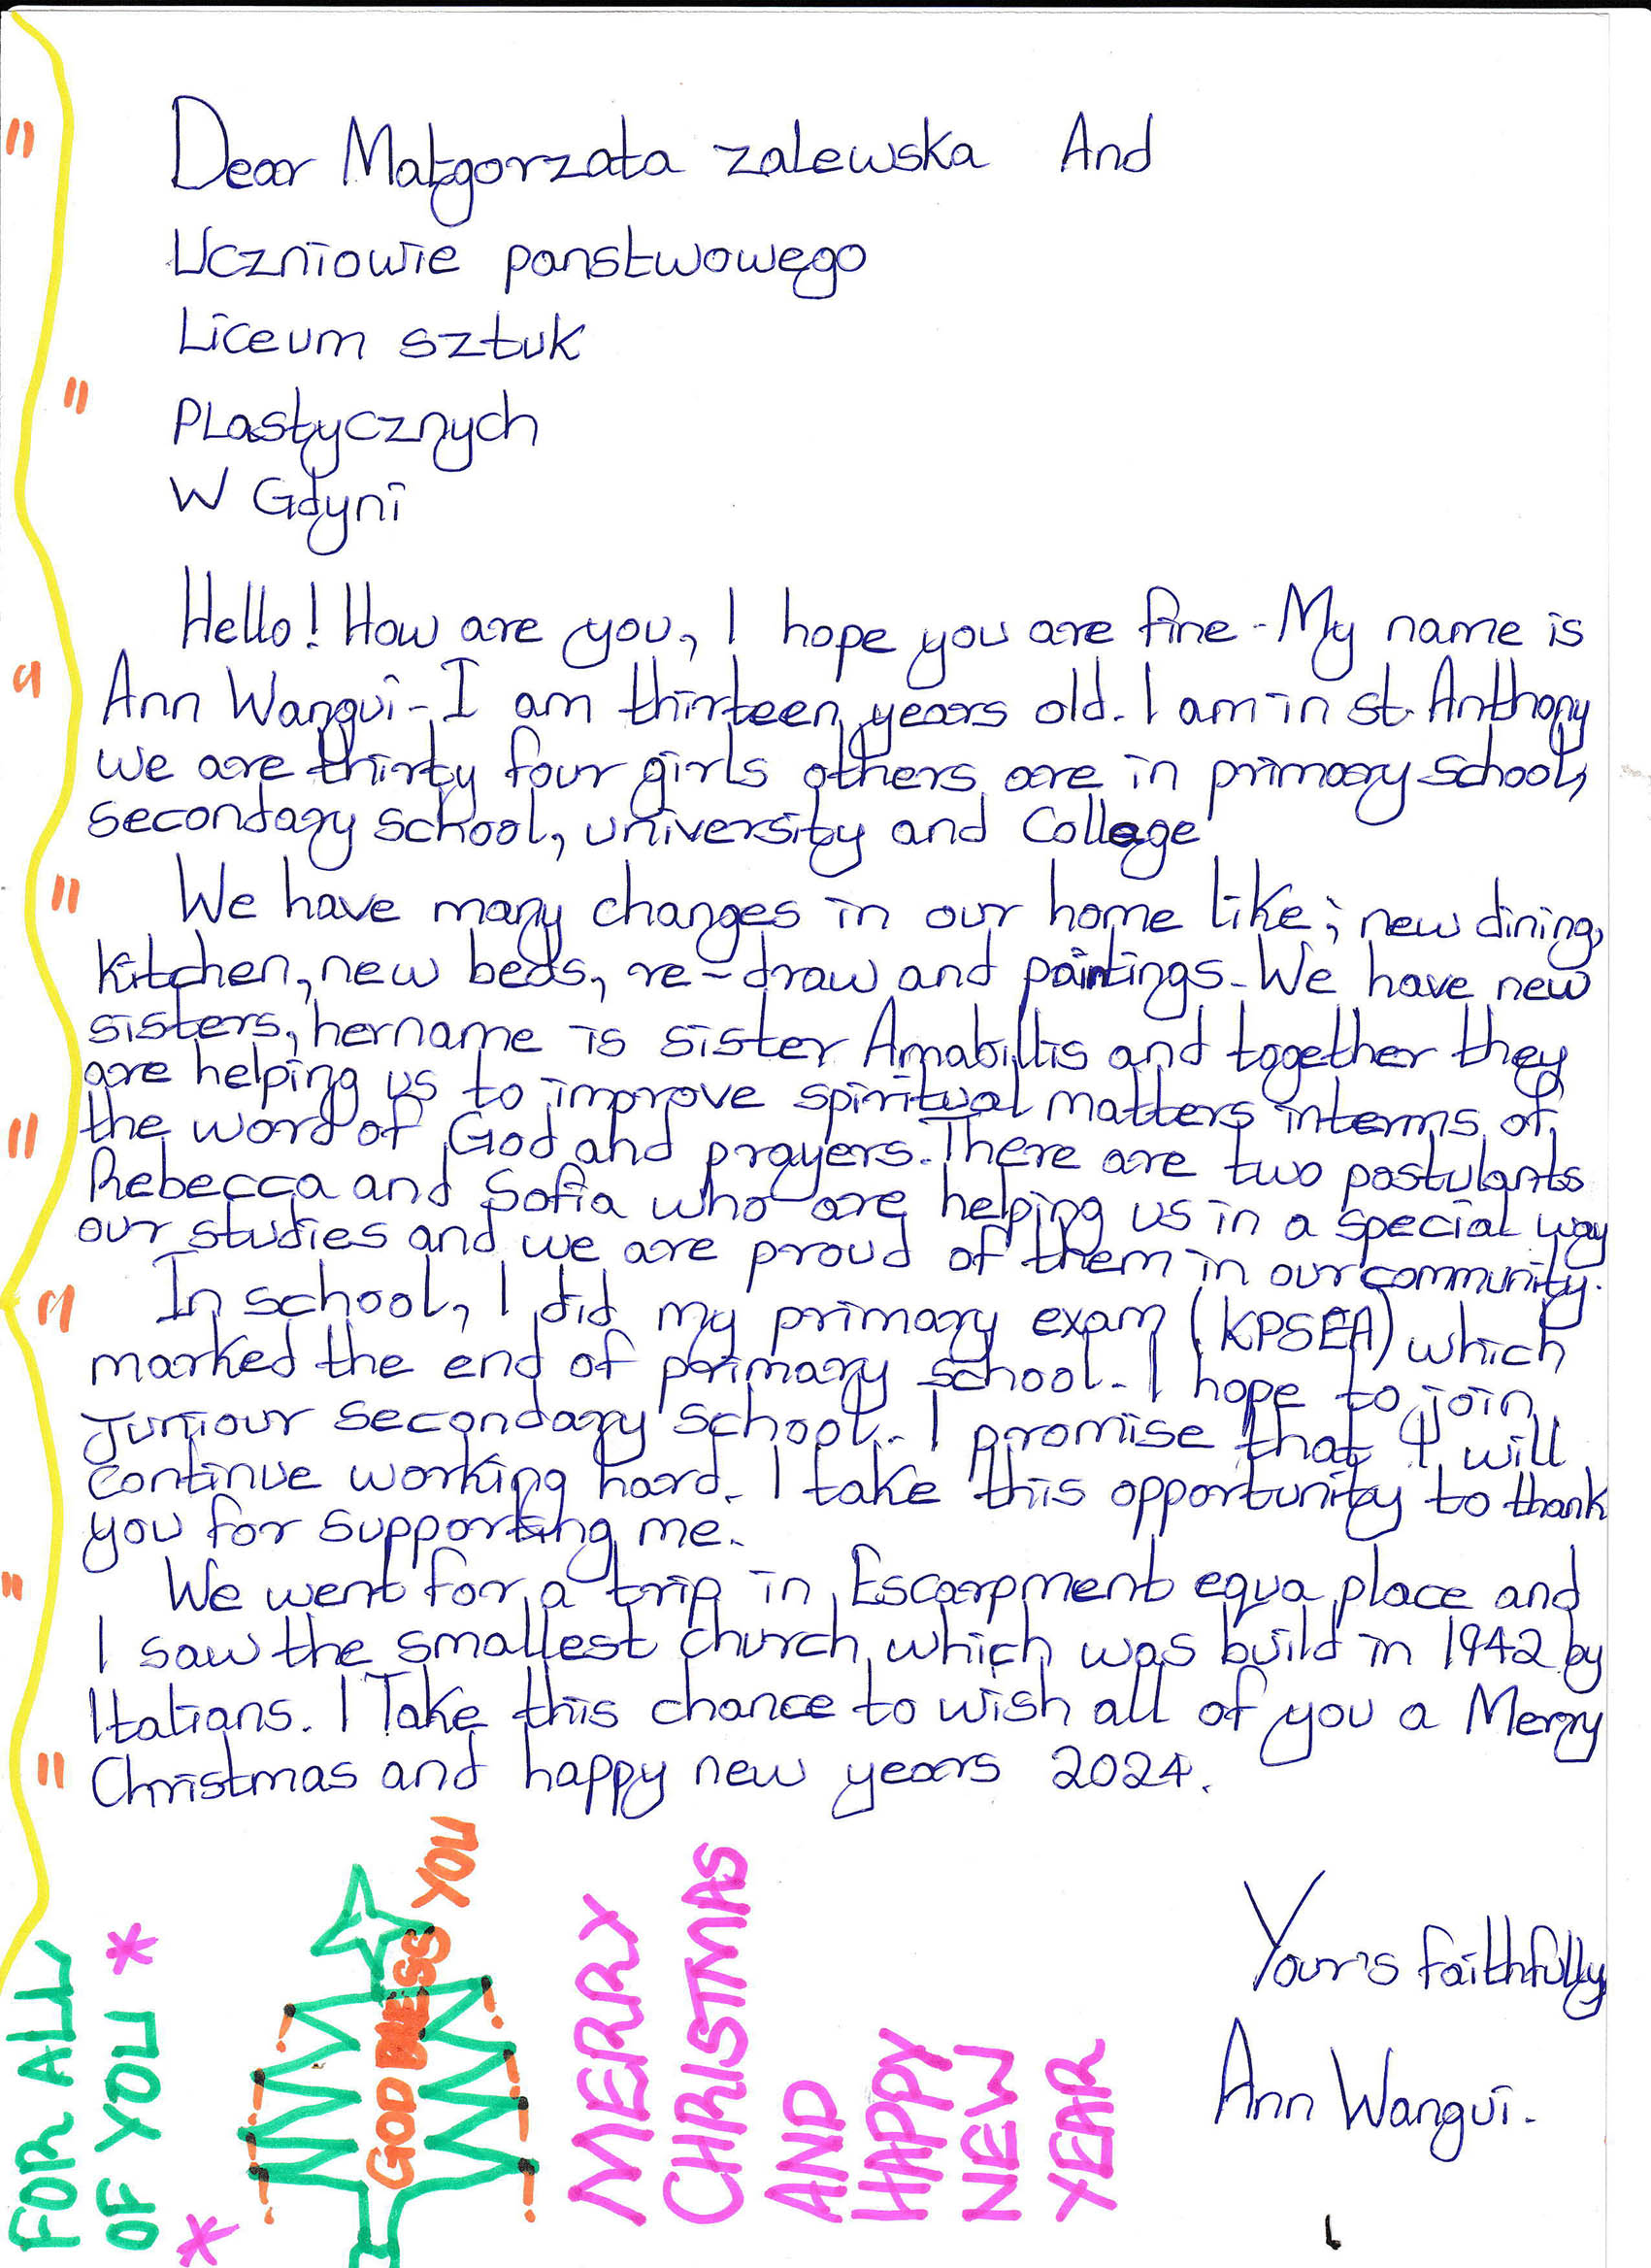 Dear Małgorzata zalewska And
Uczniowie panstwowego
Liceum sztuk
Plastycznych
W Gdyni
Hello! How are you, I hope you are fine. My name is
Ann Wangui. I am thirteen years old. I am in st. Anthony
we are thirty four girls others are in primary school,
secondary school, university and College
We have many changes in our home like; new dining,
kitchen, new beds, re-draw and paintings. We have new
sisters, her name is sister Amabillis and together they
are helping us to improve spiritual matters interms of
the word of God and prayers. There are two postulants
Rebecca and Sofia who are helping us in a special way
our studies and we are proud of them in our community.
In school, I did my primary exam (KPSEA) which
marked the end of primary school. I hope to join
Juniour secondary school. I promise that I will
continue working hard. I take this opportunity to thank
you for supporting me.
We went for a trip in Escarpment equa place and
I saw the smallest church which was build in 1942 by
Italians. I Take this chance to wish all of you a Merry
Christmas and happy new years 2024.
Your's faithfully
Ann Wangui.
FOR ALL
OF YOU
GOD BLESS YOU
MERRY
CHRISTMAS
AND
HAPPY
NEW
YEAR